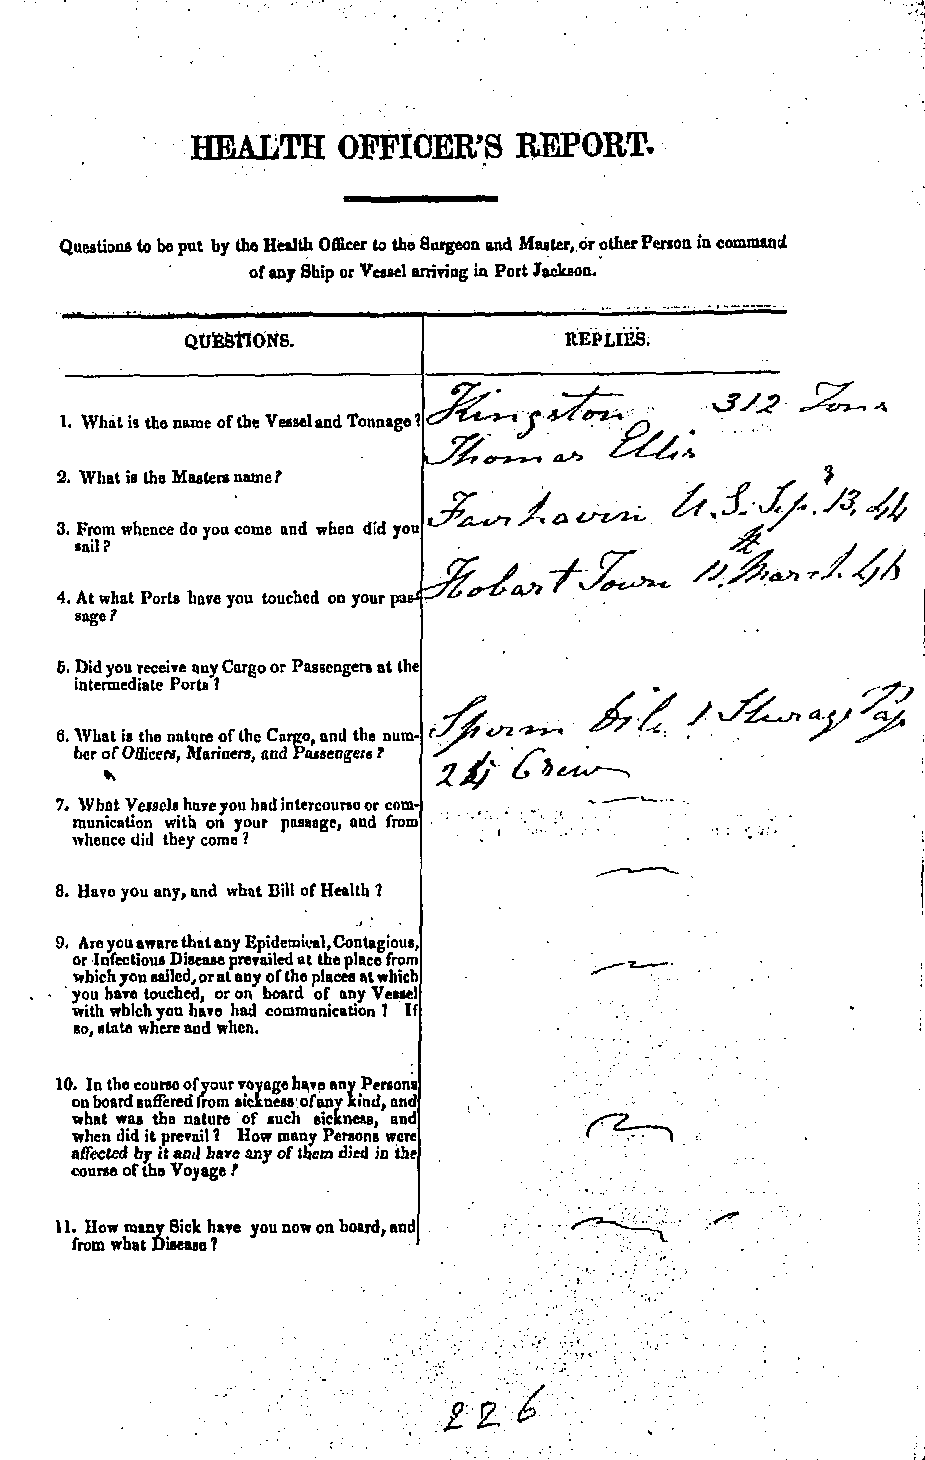 HEALTH OFFICER'S REPORT.
Questions to be put by the Health Officer to the Surgeon and Master, or other Person in command
of any Ship or Vessel arriving in Port Jackson.
QUESTIONS.
REPLIES.
1. What is the name of the Vessel and Tonnage?
Kingston 312 Tons
2. What is the Masters name?
Thomas Ellis
3. From whence do you come and when did you
sail?
Fairhaven U.S. Sep. 13, 44
4. At what Ports have you touched on your pas-
sage?
Hobart Town 11th March 46
5. Did you receive any Cargo or Passengers at the
intermediate Ports?
6. What is the nature of the Cargo, and the num-
ber of Officers, Mariners, and Passengers?
Sperm Oil 1 Sturage Pap
24 Crew
7. What Vessels have you had intercourse or com-
munication with on your passage, and from
whence did they come?
8. Have you any, and what Bill of Health?
9. Are you aware that any Epidemical, Contagious,
or Infectious Disease prevailed at the place from
which you sailed, or at any of the places at which
you have touched, or on board of any Vessel
with which you have had communication? If
so, state where and when.
10. In the course of your voyage have any Persons
on board suffered from sickness of any kind, and
what was the nature of such sickness, and
when did it prevail? How many Persons were
affected by it and have any of them died in the
course of the Voyage?
11. How many Sick have you now on board, and
from what Disease?
226